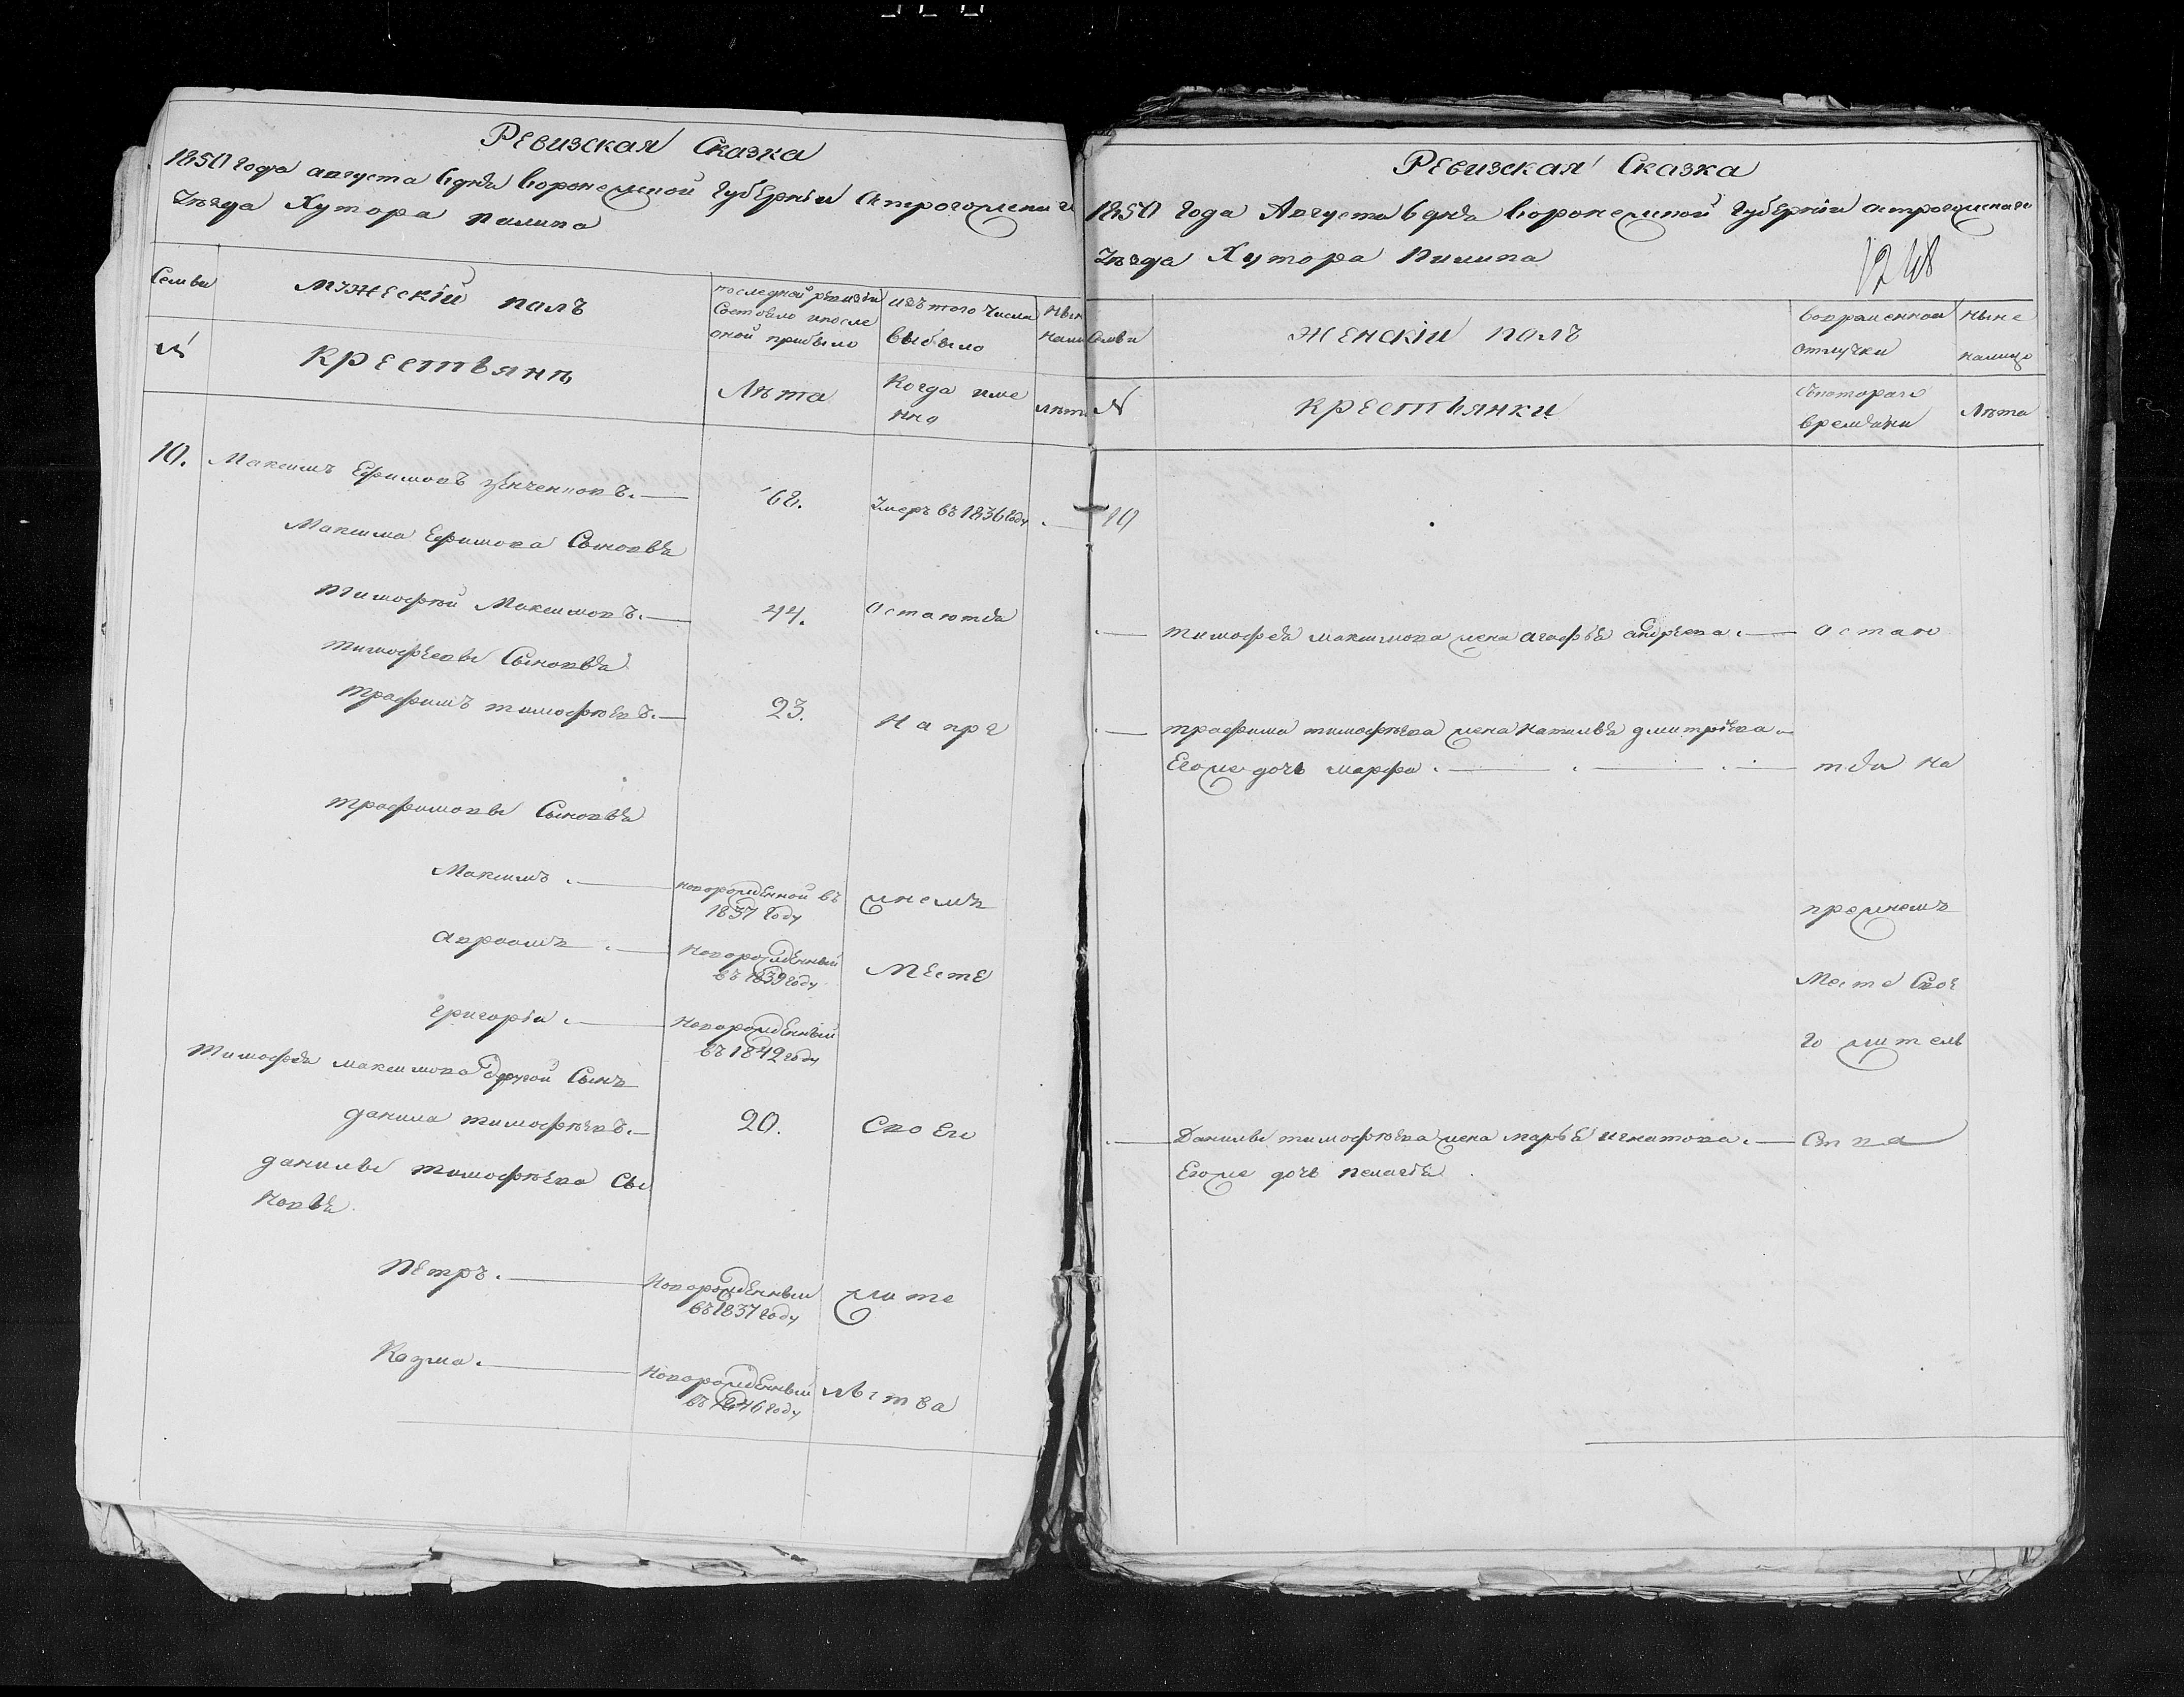 Ревизская Сказка
1850 года августа 6 дня воронежской Губернии Острогожскаг
Уезда Хутора
Семьи
мужескій полъ
последной ревизіи
Состояло и после
оной прибыло
изъ того числа
выбыло
Ныне
нали
№
крестьянъ
Лѣта
Когда име
нно
лѣта
10.
Максимъ Ефимовъ
68.
Умеръ въ 1836 году
Максима Ефимова Сыновья
тимофѣй Максимовъ.
44.
Остаются
тимофѣевы Сыновья
трофимъ тимофѣевъ.
23.
На пре
трофимовы Сыновья
Максимъ.
новорожденной въ
1837 году
жнемъ
авраамъ.
Новорожденный
въ 1839 году
месте
григорій.
Новорожденный
въ 1842 году
Тимофея максимова другой Сынъ
данила тимофѣевъ.
20.
Своего
данилы тимофѣева Сы
новья
Петръ.
Новорожденный
въ 1837 году
жите
Козма.
Новорожденный
въ 1846 году
льства
Ревизская Сказка
1850 года Августа 6 дня воронежской Губерніи острогожскаго
Уезда Хутора
1248
Семьи
женскій полъ
вовременной
отлучки
Ныне
налицо
№
крестьянки
Скотораго
времяни
Лѣта
10
тимофея максимова жена агафья андрѣева.
Остаю
трофима тимофѣева жена наталья дмитріева
Егоже дочь марфа.
тся На
прежнемъ
Месте Свое
го житель
Данилы тимофѣева жена марья игнатова.
Ства
Егоже дочь пелагея